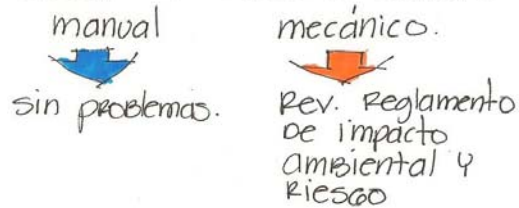 manual
sin problemas.
mecánico.
Rev. Reglamento
De impacto
ambiental y
Riesgo